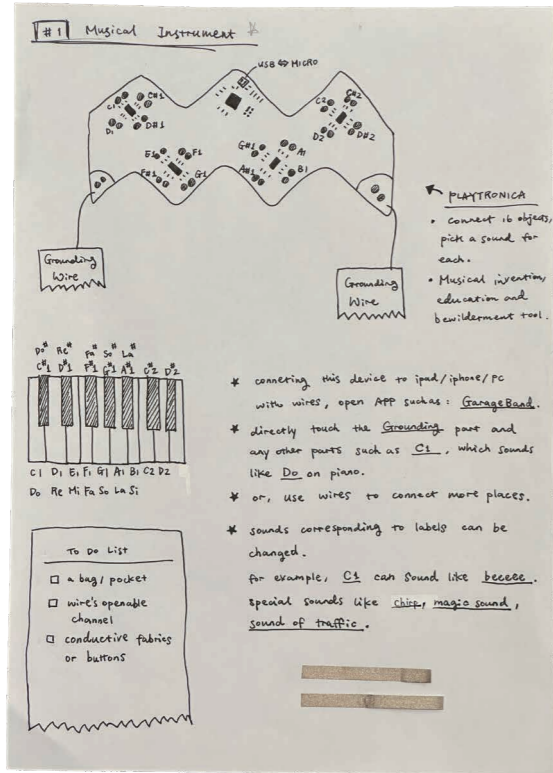 #1 Musical Instrument
USB ⇔ MICRO
C1 C#1
D1 D#1
E1 F1
F#1 G1
G#1 A1
A#1 B1
C2 C#2
D2 D#2
Grounding
Wire
Grounding
Wire
PLAYTRONICA
• Connect 16 objects,
pick a sound for
each.
• Musical invention,
education and
bewilderment tool.
Do# Re# Fa# So# La#
C#1 D#1 F#1 G#1 A#1 C#2 D#2
C1 D1 E1 F1 G1 A1 B1 C2 D2
Do Re Mi Fa So La Si
* conneting this device to ipad/iphone/PC
with wires, open APP such as: GarageBand.
* directly touch the Grounding part and
any other parts such as C1, which sounds
like Do on piano.
* or, use wires to connect more places.
* sounds corresponding to labels can be
changed.
for example, C1 can sound like beeeee.
special sounds like chirp, magic sound,
sound of traffic.
To Do List
□ a bag/pocket
□ wire's openable
channel
□ conductive fabrics
or buttons